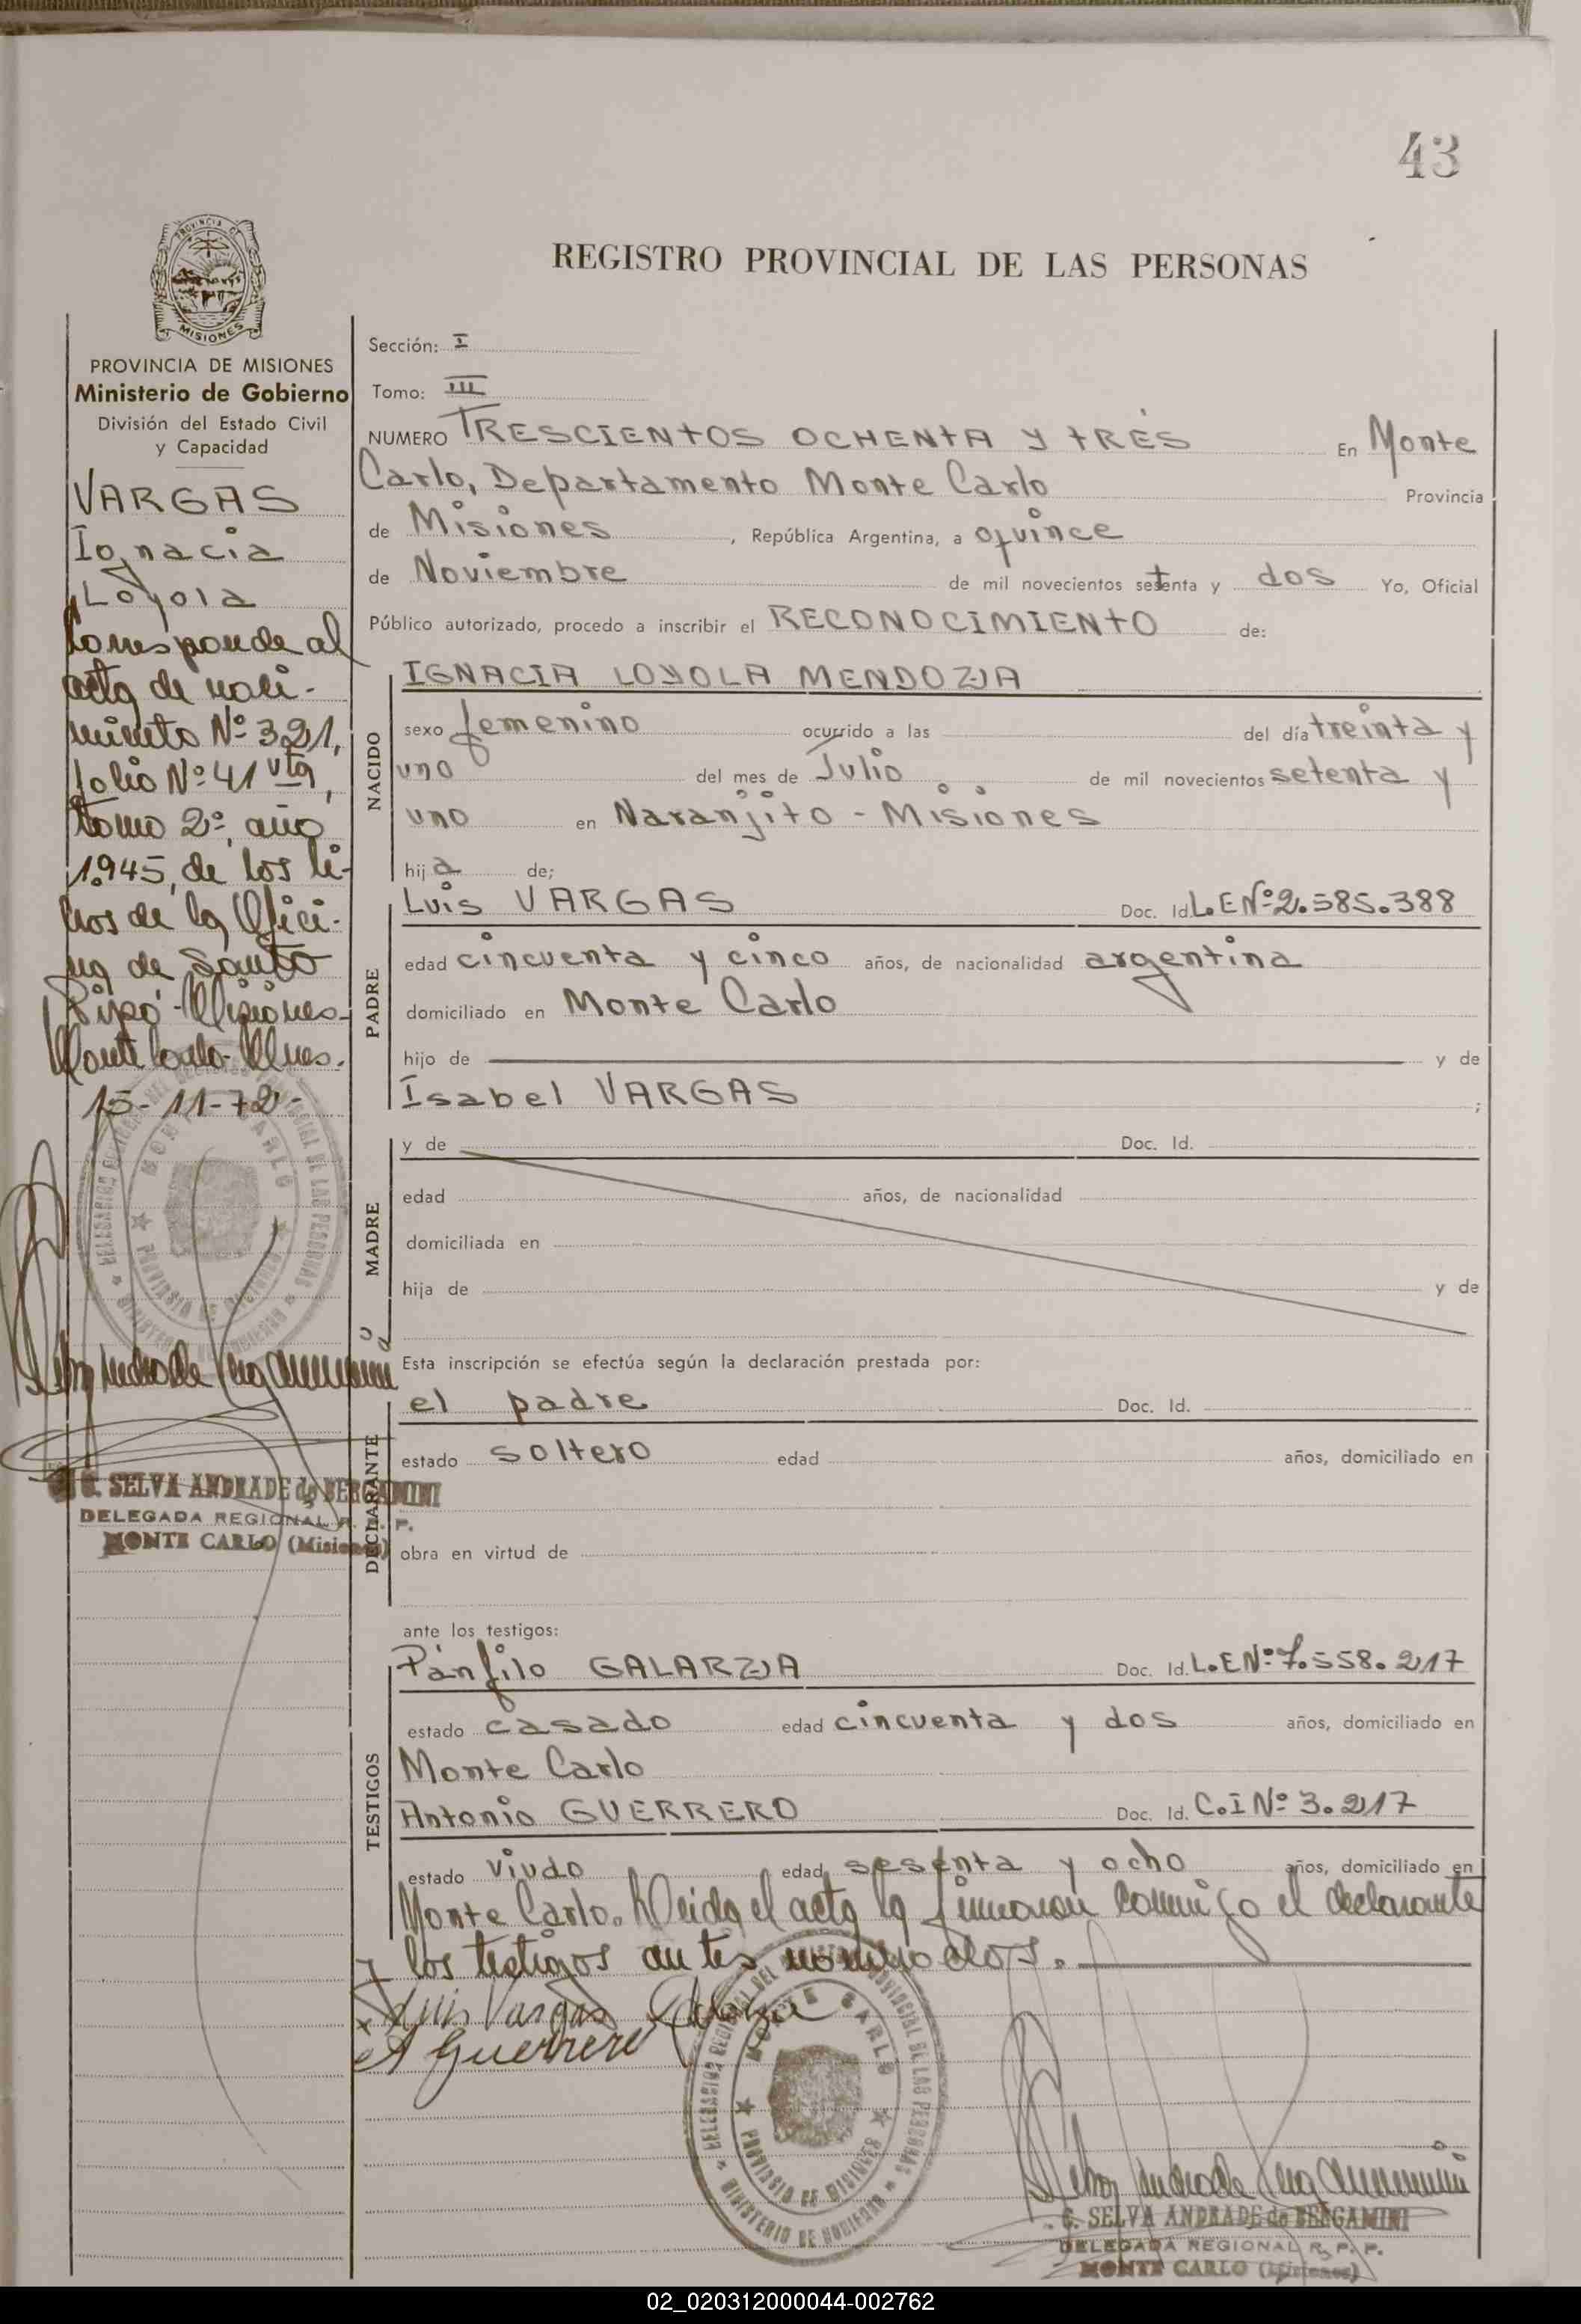 43
REGISTRO PROVINCIAL DE LAS PERSONAS
MISIONES
PROVINCIA DE MISIONES
Ministerio de Gobierno
División del Estado Civil
y Capacidad
VARGAS
Ignacia
Loyola
Corresponde al
acta de naci-
miento Nº 321,
folio Nº 41 vta,
tomo 2º, año
1.945, de los li-
bros de la Ofici-
na de Santo
Pipó - Misiones-
Monte Carlo- Mnes.
15-11-72-
G. SELVA ANDRADE de BERGAMINI
DELEGADA REGIONAL R. P. P.
MONTE CARLO (Misiones)
Sección: I
Tomo: III
NUMERO TRESCIENTOS OCHENTA Y TRES En Monte
Carlo, Departamento Monte Carlo Provincia
de Misiones, República Argentina, a quince
de Noviembre de mil novecientos setenta y dos Yo, Oficial
Público autorizado, procedo a inscribir el RECONOCIMIENTO de:
NACIDO
IGNACIA LOYOLA MENDOZA
sexo femenino ocurrido a las del día treinta y
uno del mes de Julio de mil novecientos setenta y
uno en Naranjito - Misiones
hija de;
PADRE
Luis VARGAS Doc. Id. L.E Nº 2.585.388
edad cincuenta y cinco años, de nacionalidad argentina
domiciliado en Monte Carlo
hijo de y de
Isabel VARGAS ;
MADRE
y de Doc. Id.
edad años, de nacionalidad
domiciliada en
hija de y de
Esta inscripción se efectúa según la declaración prestada por:
DECLARANTE
el padre Doc. Id.
estado soltero edad años, domiciliado en
obra en virtud de
ante los testigos:
TESTIGOS
Pánfilo GALARZA Doc. Id. L.E Nº 7.558.217
estado casado edad cincuenta y dos años, domiciliado en
Monte Carlo
Antonio GUERRERO Doc. Id. C.I Nº 3.217
estado viudo edad sesenta y ocho años, domiciliado en
Monte Carlo. Leida el acta la firmaron conmigo el declarante
y los testigos antes nombrados.
x Luis Vargas
A Guerrero
MONTE CARLO
PROVINCIA DE MISIONES
MINISTERIO DE GOBIERNO
G. SELVA ANDRADE de BERGAMINI
DELEGADA REGIONAL R. P. P.
MONTE CARLO (Misiones)
02_020312000044-002762